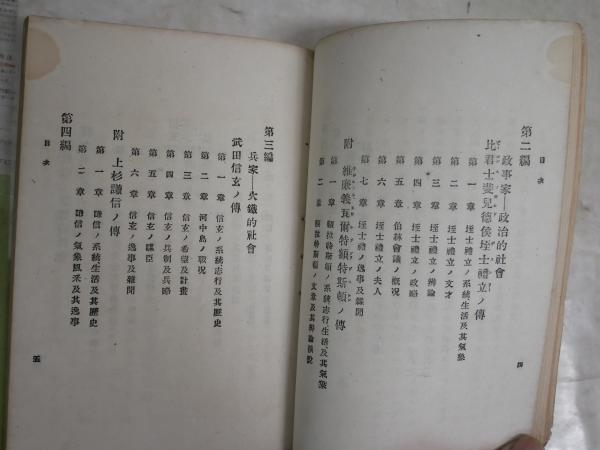 目次
第二編
政事家―政治的社會
比君士斐兒德侯垤士禮立ノ傳
第一章 垤士禮立ノ系統生活及其氣象
第二章 垤士禮立ノ文才
第三章 垤士禮立ノ辯論
第四章 垤士禮立ノ政略
第五章 伯林會議ノ概況
第六章 垤士禮立ノ夫人
第七章 垤士禮立ノ逸事及雜聞
附 維廉義瓦爾特顯特斯頓ノ傳
第一章 顯特斯頓ノ系統志行生活及其氣象
第二章 顯特斯頓ノ文章及其辯論
四
第三編
兵家―火鐵的社會
武田信玄ノ傳
第一章 信玄ノ系統志行及其歷史
第二章 河中島ノ戰況
第三章 信玄ノ希望及計畫
第四章 信玄ノ兵制及兵略
第五章 信玄ノ謀臣
第六章 信玄ノ逸事及雜聞
附 上杉謙信ノ傳
第一章 謙信ノ系統生活及其歷史
第二章 謙信ノ氣象風采及其逸事
第四編
目次
五